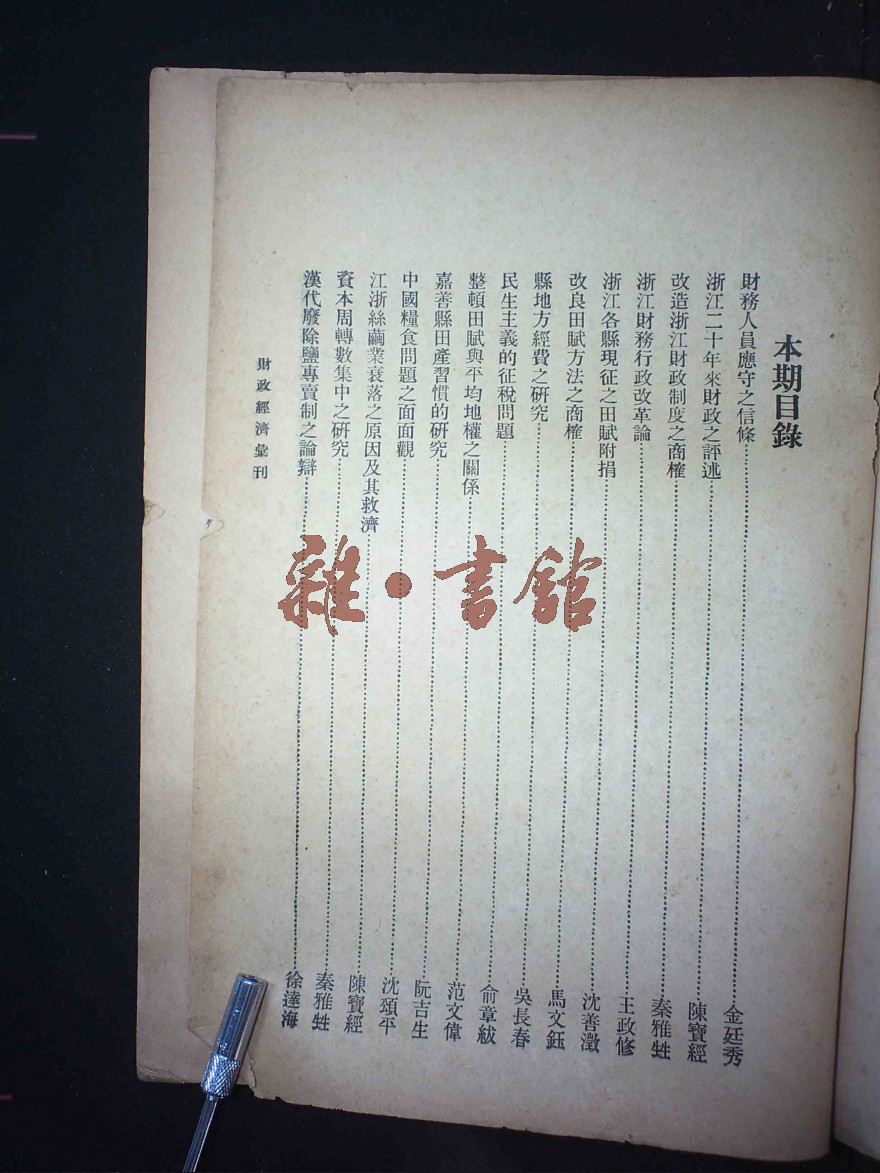 本期目錄
財務人員應守之信條……金廷秀
浙江二十年來財政之評述……陳寶經
改造浙江財政制度之商榷……秦雅甡
浙江財務行政改革論……王政修
浙江各縣現征之田賦附捐……沈善澂
改良田賦方法之商榷……馬文鈺
縣地方經費之研究……吳長春
民生主義的征稅問題……俞章紱
整頓田賦與平均地權之關係……范文偉
嘉善縣田產習慣的研究……阮吉生
中國糧食問題之面面觀……沈頌平
江浙絲繭業衰落之原因及其救濟……陳寶經
資本周轉數集中之研究……秦雅甡
漢代廢除鹽專賣制之論辯……徐達海
財政經濟彙刊
雜·書館